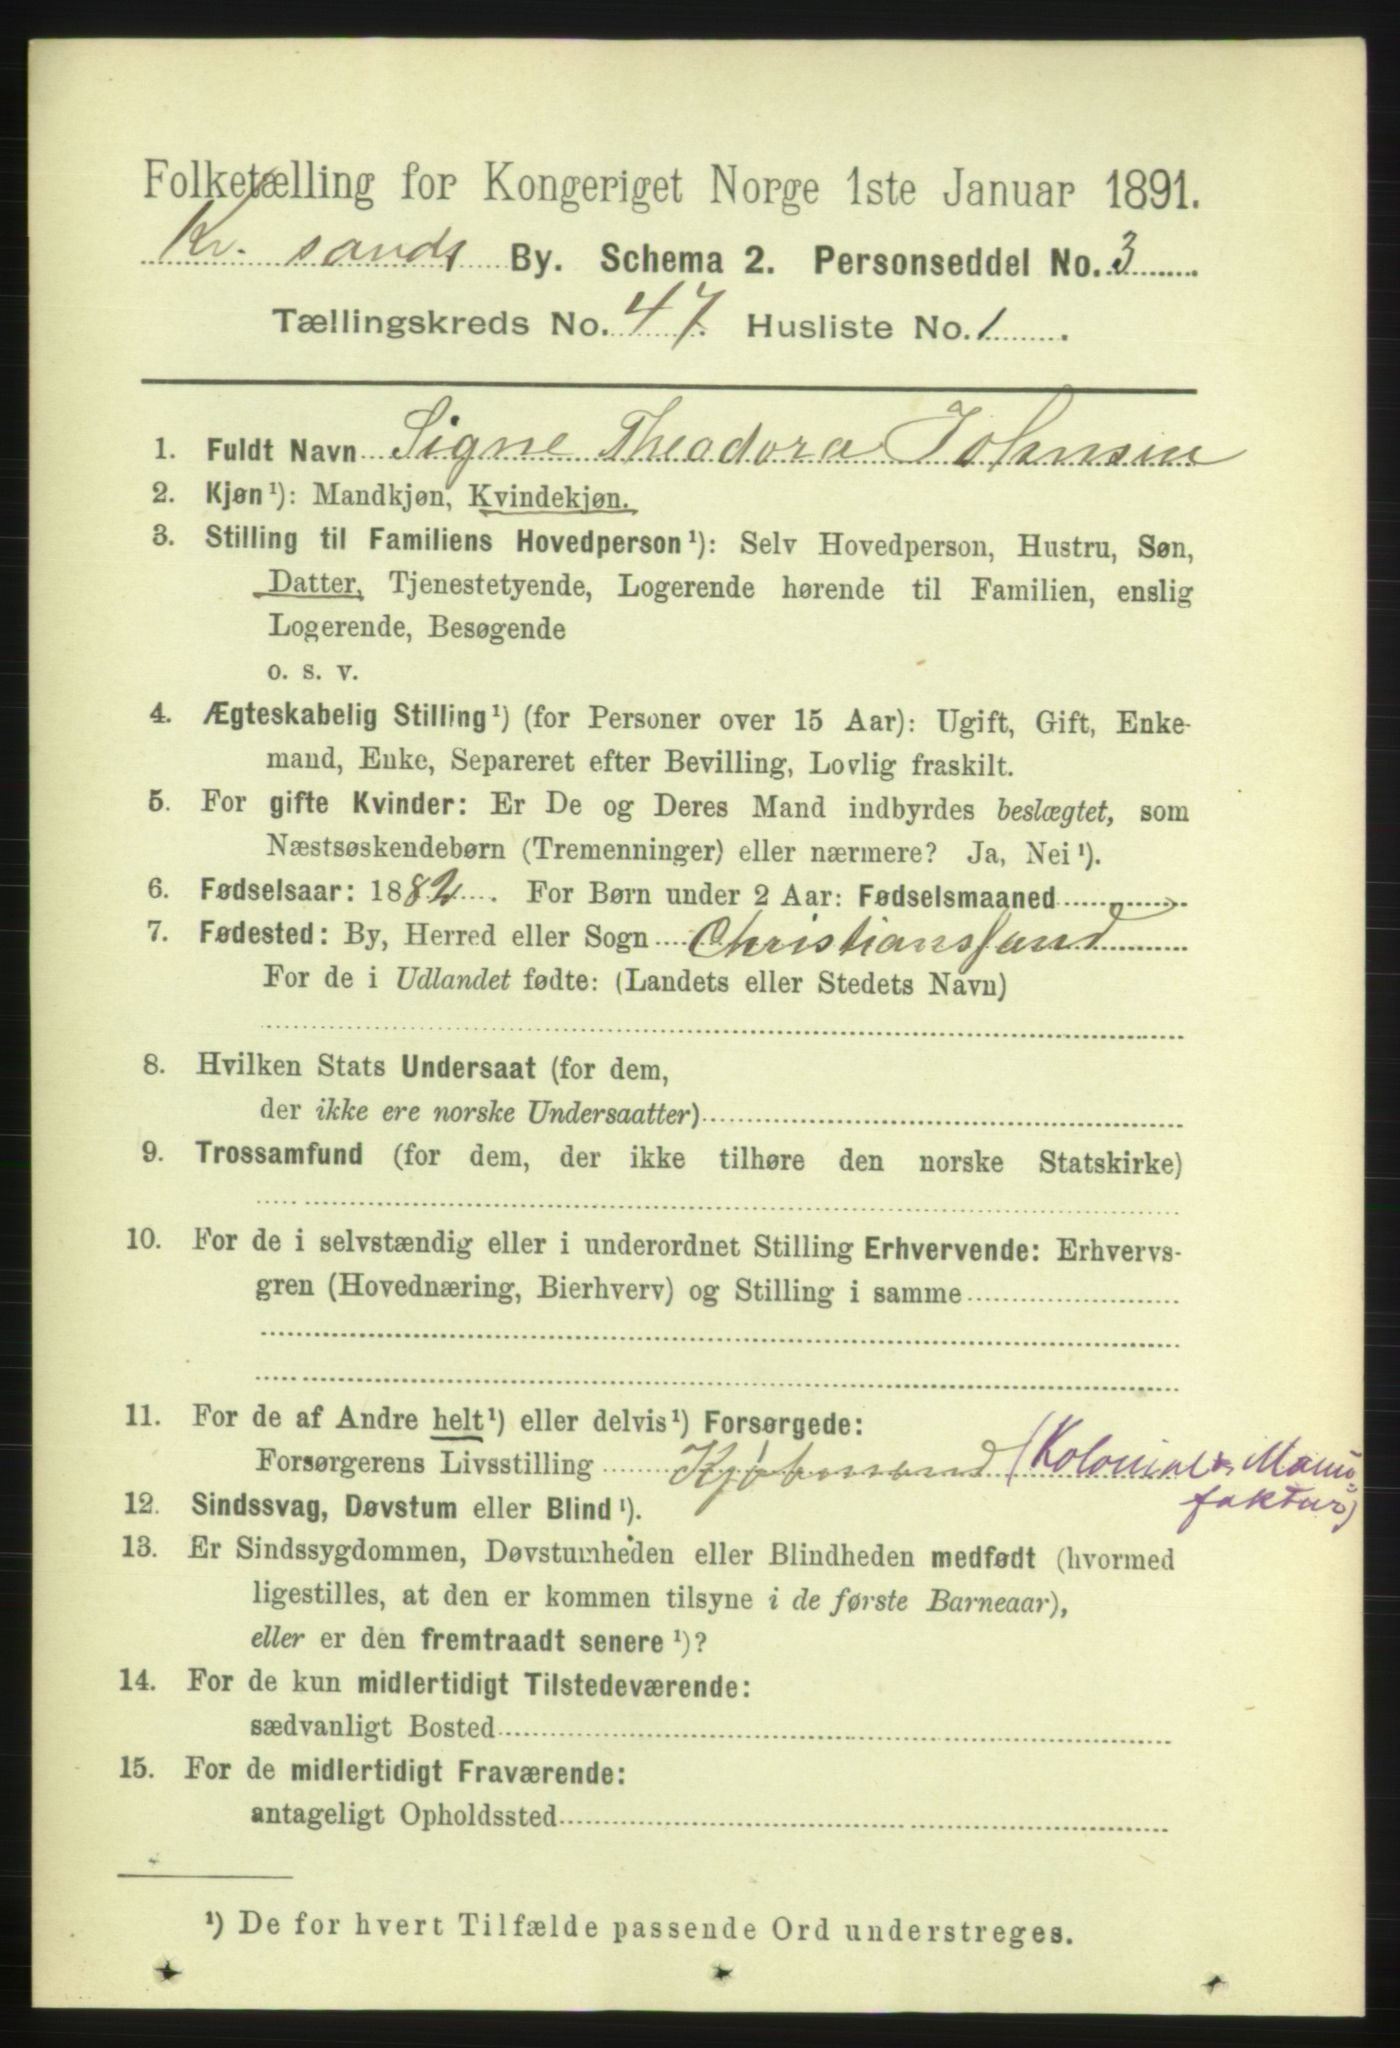 Folketælling for Kongeriget Norge 1ste Januar 1891.
Kr. sands By. Schema 2. Personseddel No. 3
Tællingskreds No. 47. Husliste No. 1.
1. Fuldt Navn Signe Theodora Johnsen
2. Kjøn¹): Mandkjøn, Kvindekjøn.
3. Stilling til Familiens Hovedperson¹): Selv Hovedperson, Hustru, Søn,
Datter, Tjenestetyende, Logerende hørende til Familien, enslig
Logerende, Besøgende
o. s. v.
4. Ægteskabelig Stilling¹) (for Personer over 15 Aar): Ugift, Gift, Enke-
mand, Enke, Separeret efter Bevilling, Lovlig fraskilt.
5. For gifte Kvinder: Er De og Deres Mand indbyrdes beslægtet, som
Næstsøskendebørn (Tremenninger) eller nærmere? Ja, Nei¹).
6. Fødselsaar: 1882. For Børn under 2 Aar: Fødselsmaaned
7. Fødested: By, Herred eller Sogn Christianssand
For de i Udlandet fødte: (Landets eller Stedets Navn)
8. Hvilken Stats Undersaat (for dem,
der ikke ere norske Undersaatter)
9. Trossamfund (for dem, der ikke tilhøre den norske Statskirke)
10. For de i selvstændig eller i underordnet Stilling Erhvervende: Erhvervs-
gren (Hovednæring, Bierhverv) og Stilling i samme
11. For de af Andre helt¹) eller delvis¹) Forsørgede:
Forsørgerens Livsstilling Kjøbmand (Kolonial & Manu-
faktur)
12. Sindssvag, Døvstum eller Blind¹).
13. Er Sindssygdommen, Døvstumheden eller Blindheden medfødt (hvormed
ligestilles, at den er kommen tilsyne i de første Barneaar),
eller er den fremtraadt senere¹)?
14. For de kun midlertidigt Tilstedeværende:
sædvanligt Bosted
15. For de midlertidigt Fraværende:
antageligt Opholdssted
¹) De for hvert Tilfælde passende Ord understreges.